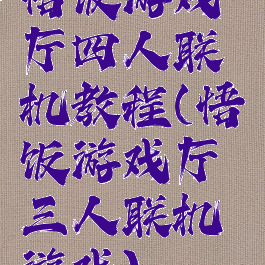 悟饭游戏
厅四人联
机教程(悟
饭游戏厅
三人联机
游戏)